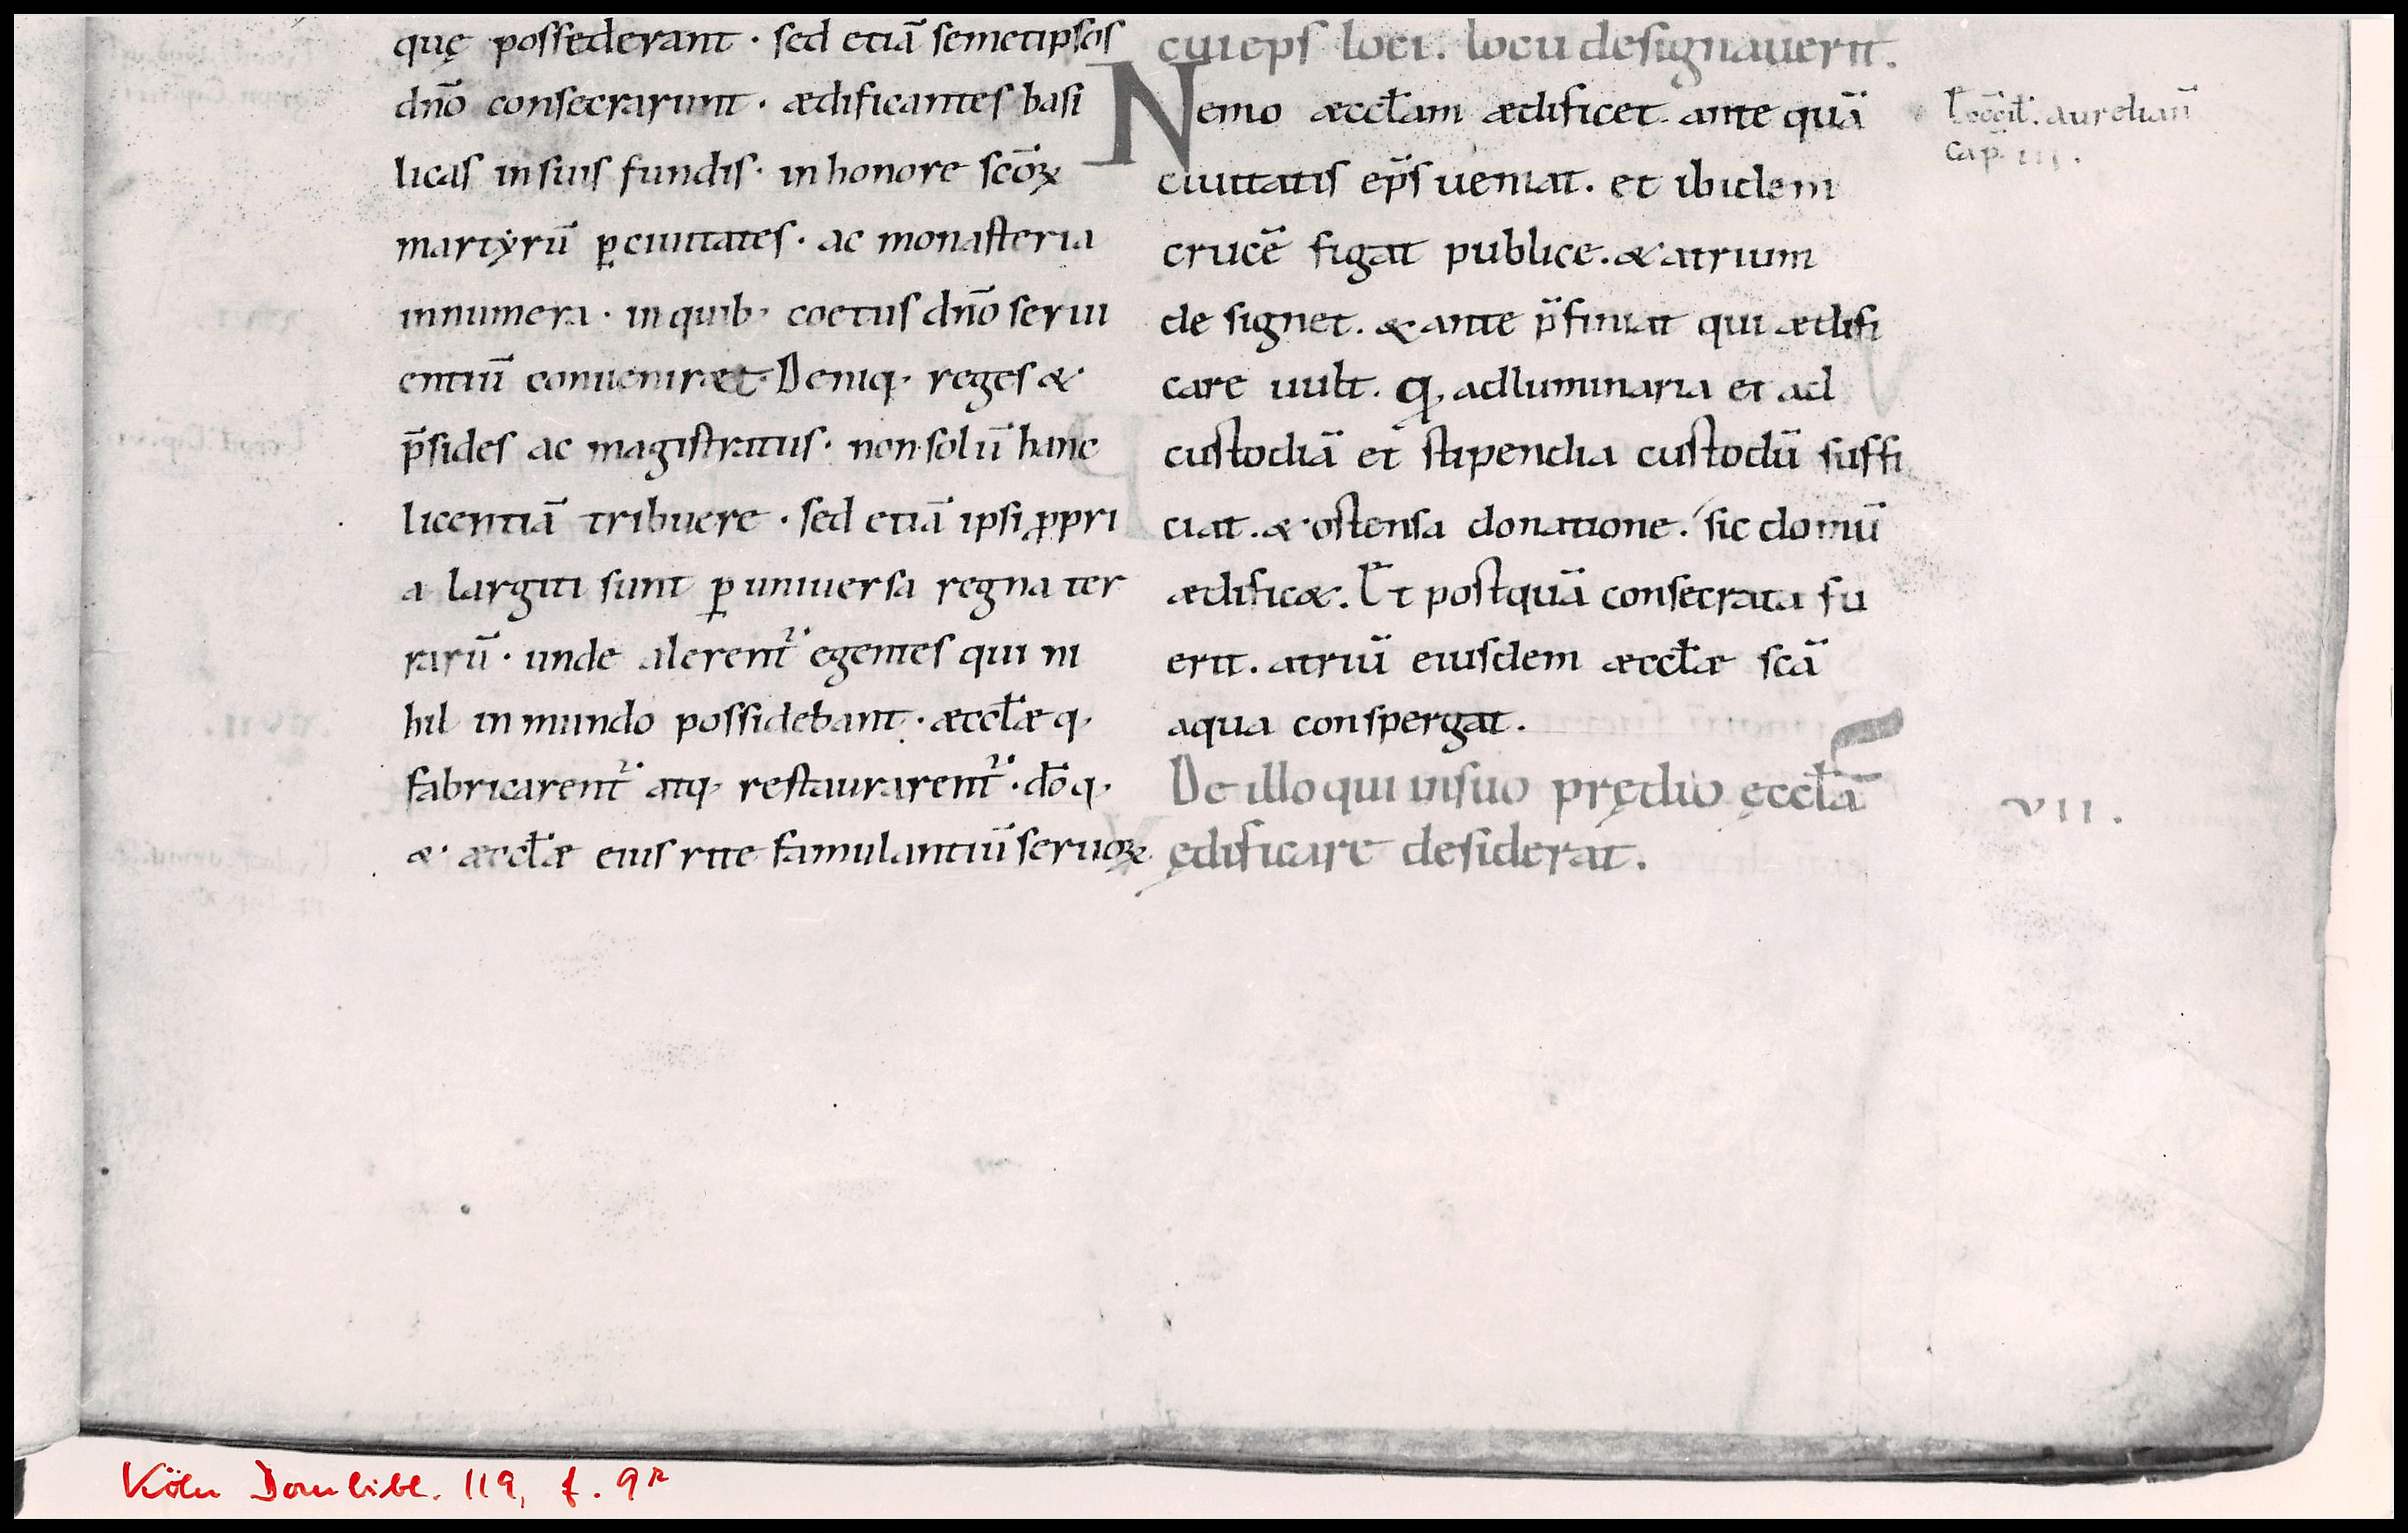 quę possederant · sed etiā semetipsos
dño consecrarunt · ædificantes basi
licas in suis fundis · in honore scōꝝ
martyrū ꝑ ciuitates · ac monasteria
innumera · in quib; coetus dño serui
entiū conueniret · Deniq; reges &
p̄sides ac magistratus · non solū hanc
licentiā tribuere · sed etiā ipsi ꝓpri
a largiti sunt ꝑ uniuersa regna ter
rarū · unde alerent᷑ egentes qui ni
hil in mundo possidebant · æccl̄æ q;
fabricarent᷑ atq; restaurarent᷑ · dō q;
& æccl̄æ eius rite famulantiū seruoꝝ
cui ep̄s loci . locū designauerit .
Nemo æccl̄am ædificet . ante quā
ciuitatis ep̄s ueniat . et ibidem
crucē figat publice . & atrium
designet . & ante p̄finiat qui ædifi
care uult . q; ad luminaria et ad
custodiā et stipendia custodū suffi
ciat . & ostensa donatione . sic domū
ædific& . Et postquā consecrata fu
erit . atriū eiusdem æccl̄æ scā
aqua conspergat .
De illo qui in suo prędio ęccl̄ā
ędificare desiderat .
Ex cōcil̄ . aurelian̄
cap . III .
VII .
Köln Dombibl. 119, f. 9r